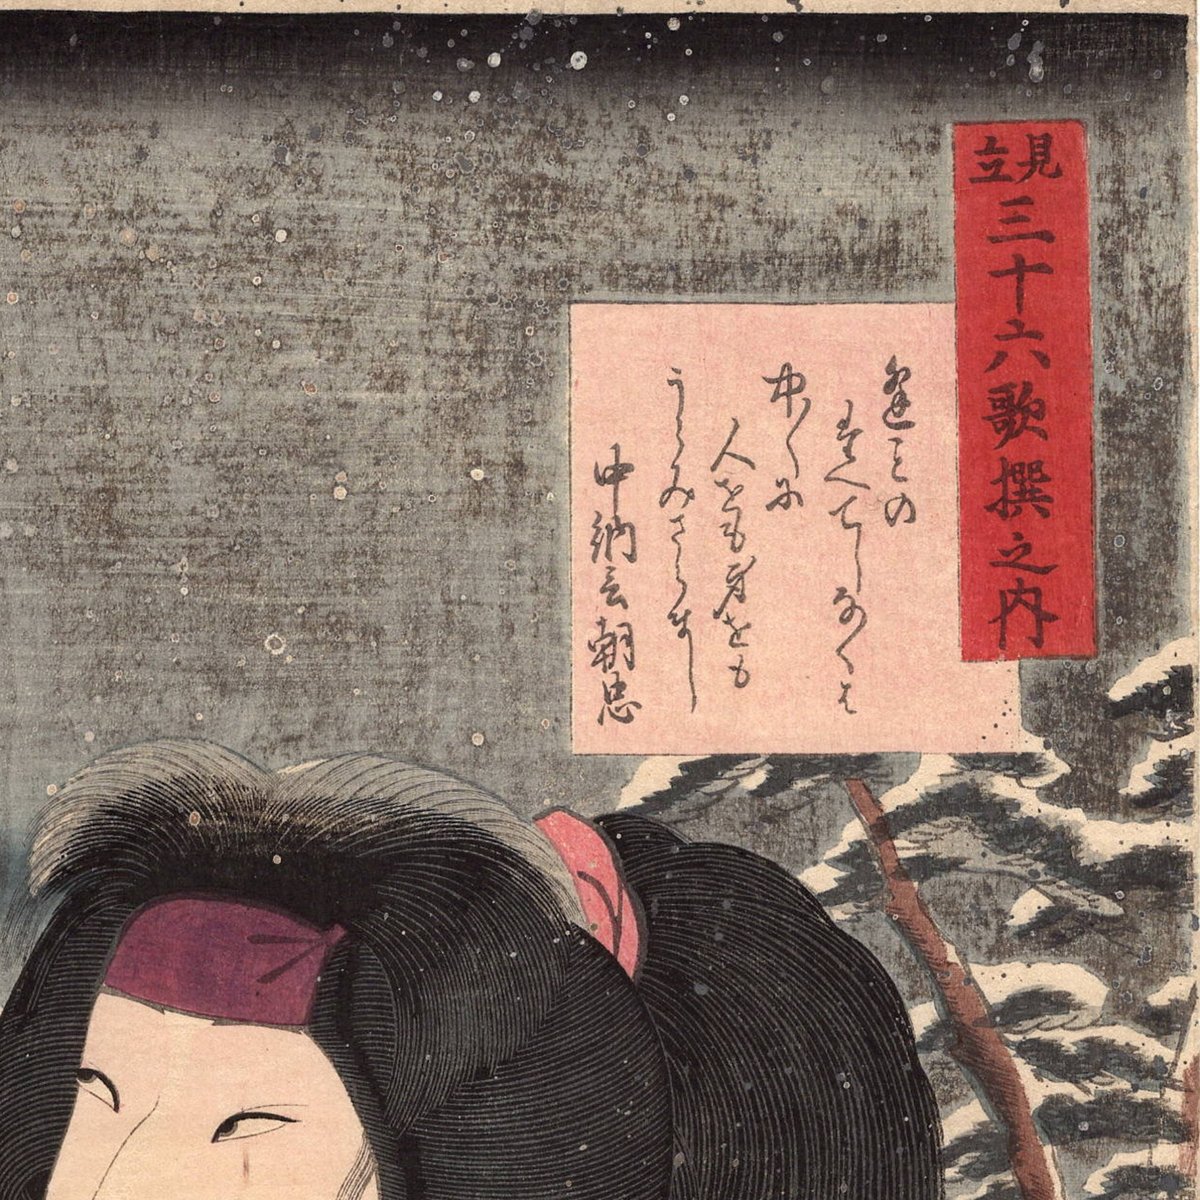 見立三十六歌撰之内
逢ことの
たへてしなくは
中〱に
人をも身をも
うらみさらまし
中納言朝忠